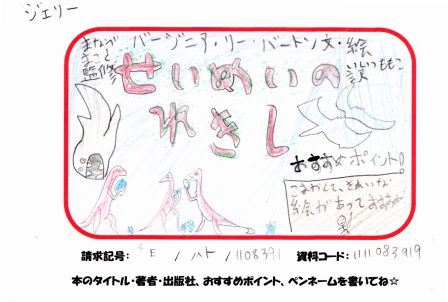 ジェリー
まなべ
まこと
監修
バージニア・リー・バートン文・絵
いしいももこ
訳
せいめいの
れきし
おすすめポイント!
こまかくて、きれいな
絵があっておすすめ
請求記号: E / ハト / 1108391 資料コード: 1111083919
本のタイトル・著者・出版社、おすすめポイント、ペンネームを書いてね☆